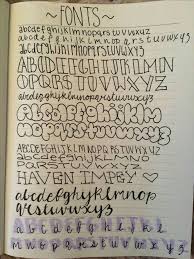 ~FONTS~
abcdefghijklmnopqrstuvwxyz
abcdefghijklmnopqrstuvwxyz
abcdefghijklm
nopqrstuvwxyz
ABCDEFGHIJKLMN
OPQRSTUVWXYZ
abcdefghijklmnopqrstuvwxyz
abcdefghijklm
nopqrstuvwxyz
ABCDEFGHIJKLMNOP
QRSTUVWXYZ
ABCDEFGHIJKLMNO
PQRSTUVWXYZ
HAVEN IMPEY
abcdefghijklmnop
qrstuvwxyz
abcdefghijkl
mnopqrstuvwxyz